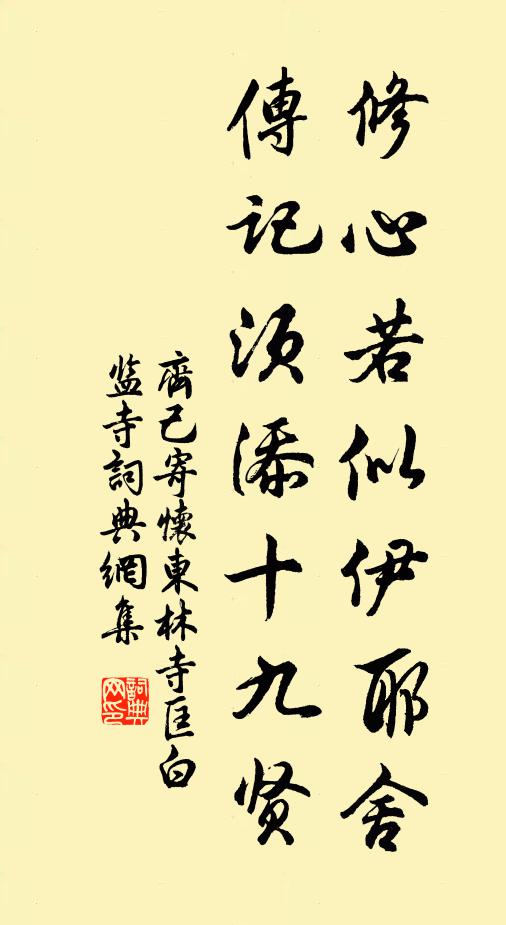 修心若似伊耶舍
傳記須添十九贤
齊己寄懷東林寺匡白
监寺詞典網集
詞典网印